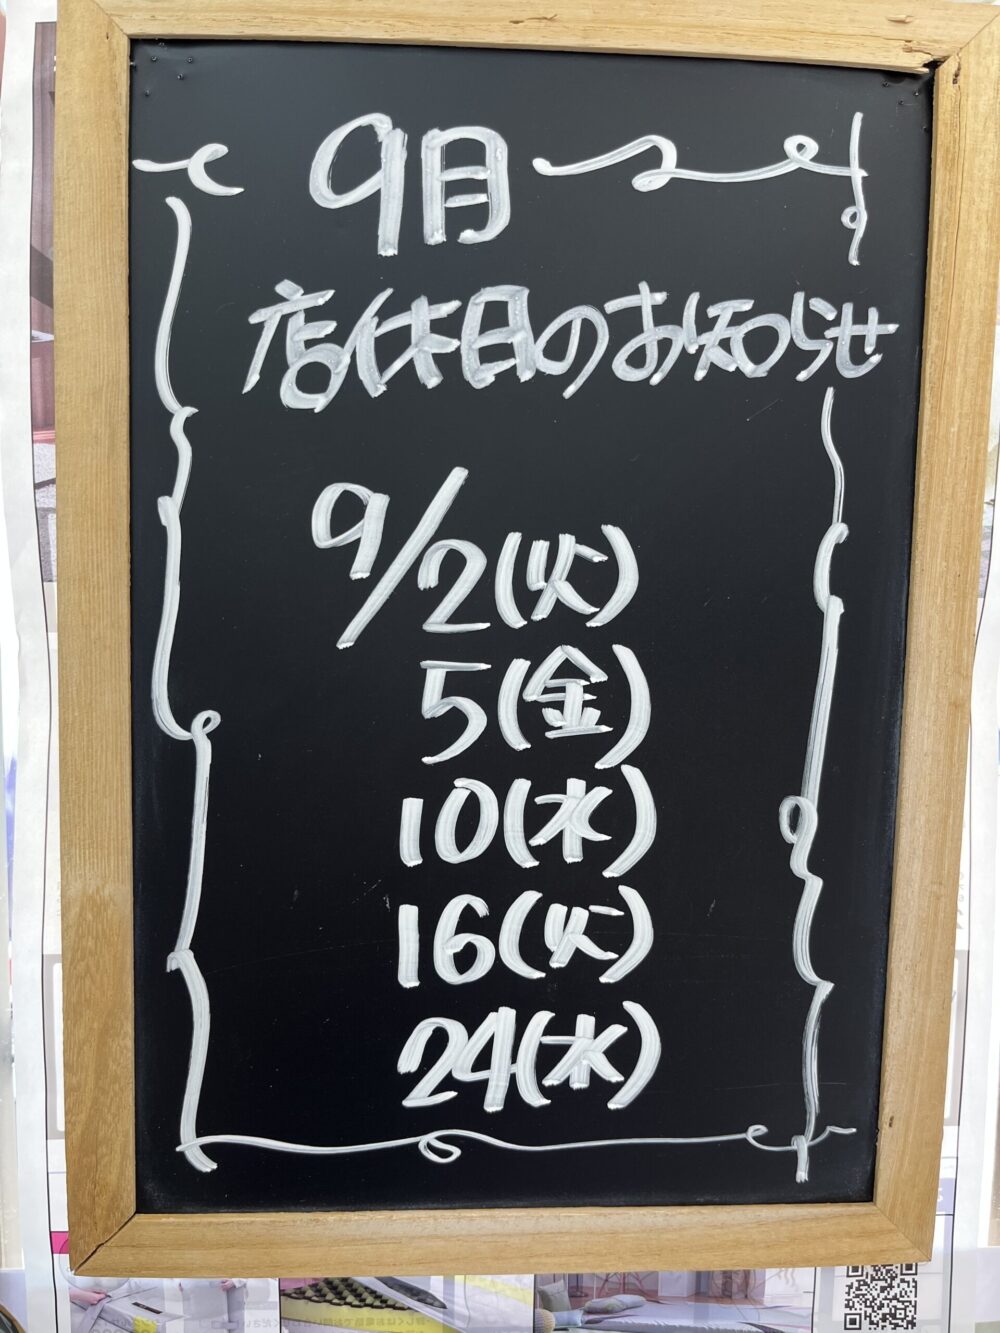 9月
店休日のお知らせ
9/2(火)
5(金)
10(水)
16(火)
24(水)